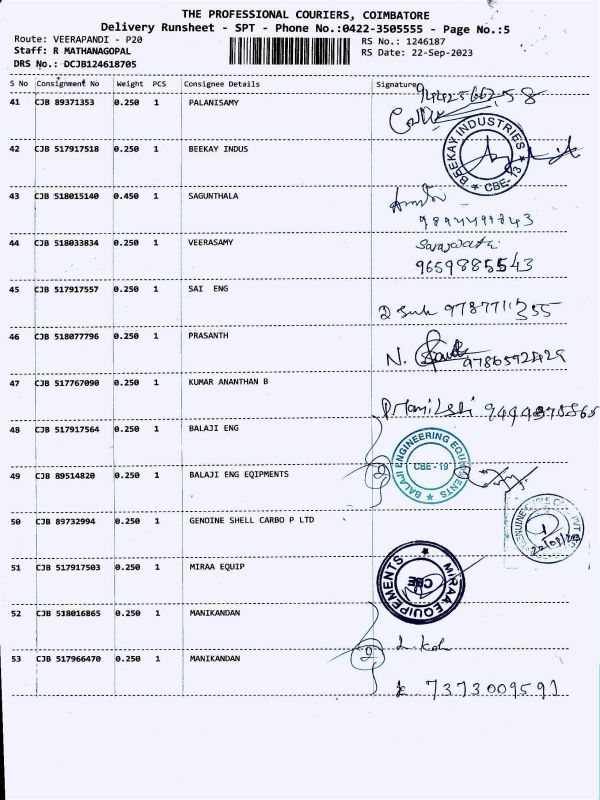 THE PROFESSIONAL COURIERS, COIMBATORE
Delivery Runsheet - SPT - Phone No.:0422-3505555 - Page No.:5
Route: VEERAPANDI - P20
RS No.: 1246187
Staff: R MATHANAGOPAL
RS Date: 22-Sep-2023
DRS No.: DCJB124618705
S No Consignment No Weight PCS Consignee Details Signature
41 CJB 89371353 0.250 1 PALANISAMY
42 CJB 517917518 0.250 1 BEEKAY INDUS
BEEKAY INDUSTRIES
★ CBE-13 ★
43 CJB 518015140 0.450 1 SAGUNTHALA
44 CJB 518033834 0.250 1 VEERASAMY
9659885543
45 CJB 517917557 0.250 1 SAI ENG
46 CJB 518077796 0.250 1 PRASANTH
N.
47 CJB 517767090 0.250 1 KUMAR ANANTHAN B
48 CJB 517917564 0.250 1 BALAJI ENG
BALAJI ENGINEERING EQUIPMENTS ★
CBE - 19
49 CJB 89514820 0.250 1 BALAJI ENG EQIPMENTS
50 CJB 89732994 0.250 1 GENOINE SHELL CARBO P LTD
51 CJB 517917503 0.250 1 MIRAA EQUIP
MIRAA EQUIPEMENTS ★
CBE
52 CJB 518016865 0.250 1 MANIKANDAN
53 CJB 517966470 0.250 1 MANIKANDAN
7373009591